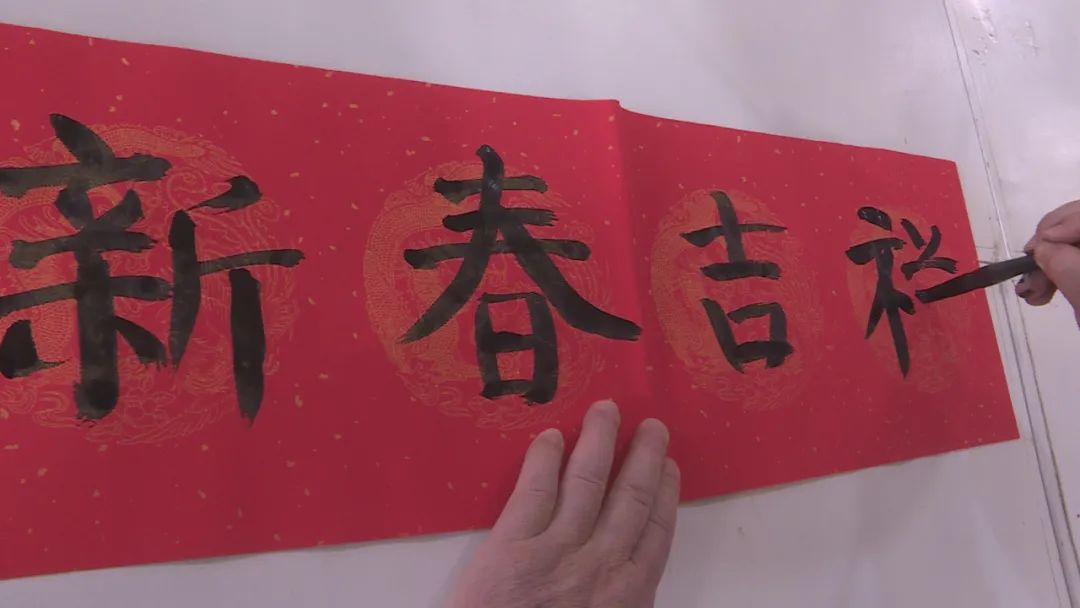 新春吉祥